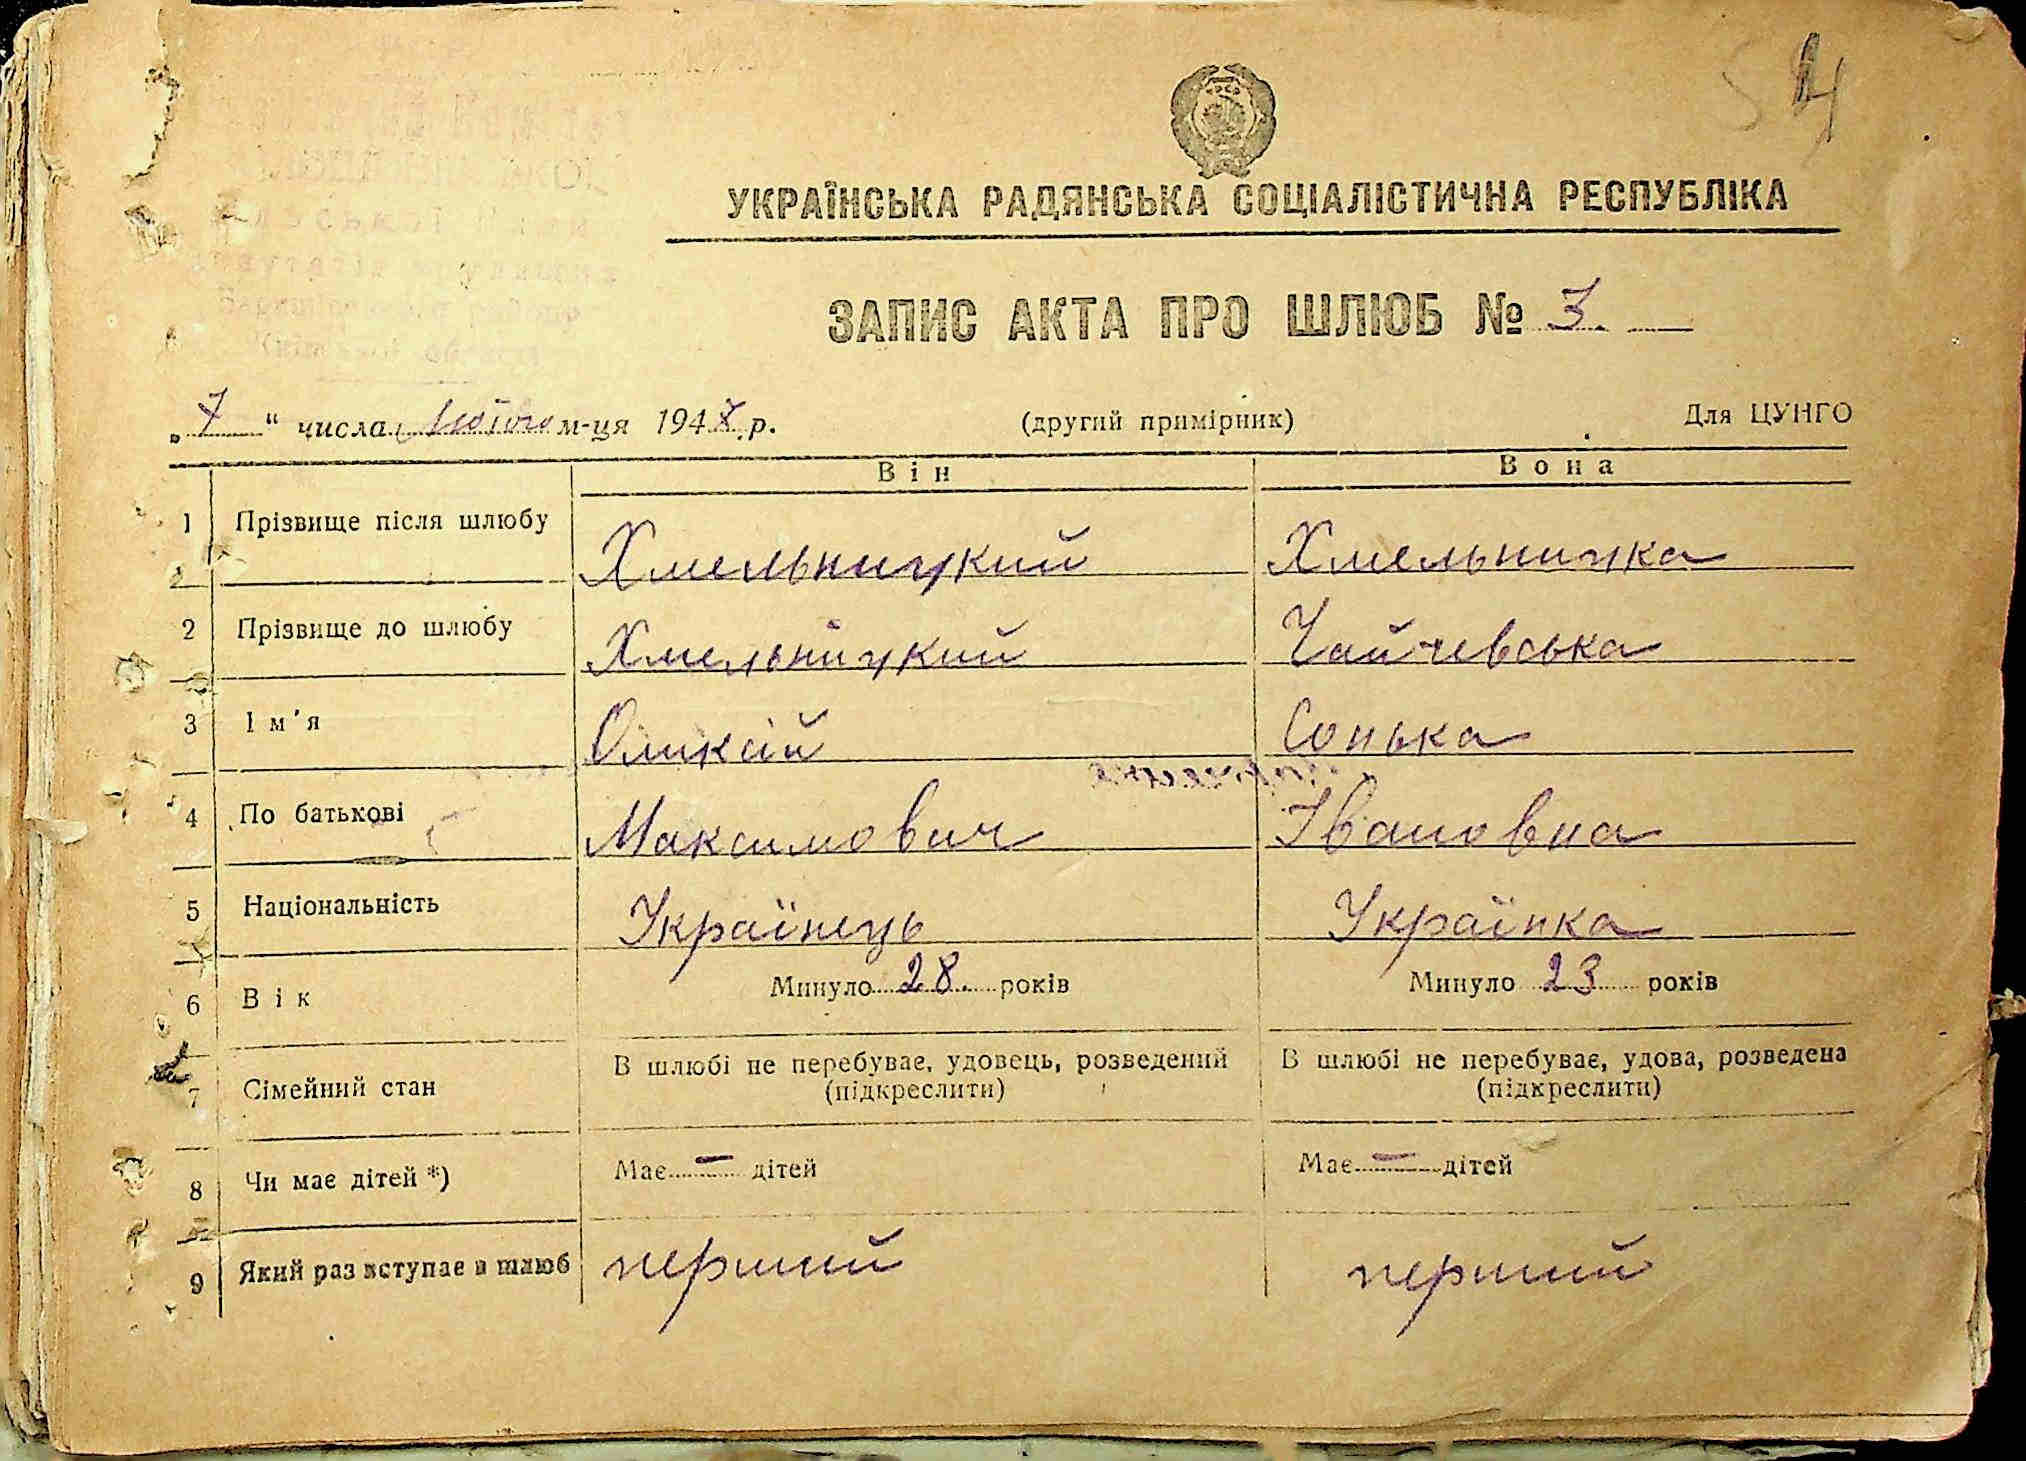 УКРАЇНСЬКА РАДЯНСЬКА СОЦІАЛІСТИЧНА РЕСПУБЛІКА
ЗАПИС АКТА ПРО ШЛЮБ № 3.
„7“ числа Лютого м-ця 1947 р. (другий примірник) Для ЦУНГО
Він Вона
1 Прізвище після шлюбу Хмельницкий Хмельницка
2 Прізвище до шлюбу Хмельницкий Чайчевська
3 Ім'я Оликсій Сонька
4 По батькові Максимович Івановна
5 Національність Українець Українка
6 Вік Минуло 28. років Минуло 23 років
7 Сімейний стан В шлюбі не перебуває, удовець, розведений В шлюбі не перебуває, удова, розведена
(підкреслити) (підкреслити)
8 Чи має дітей *) Має — дітей Має — дітей
9 Який раз вступає в шлюб перший перший